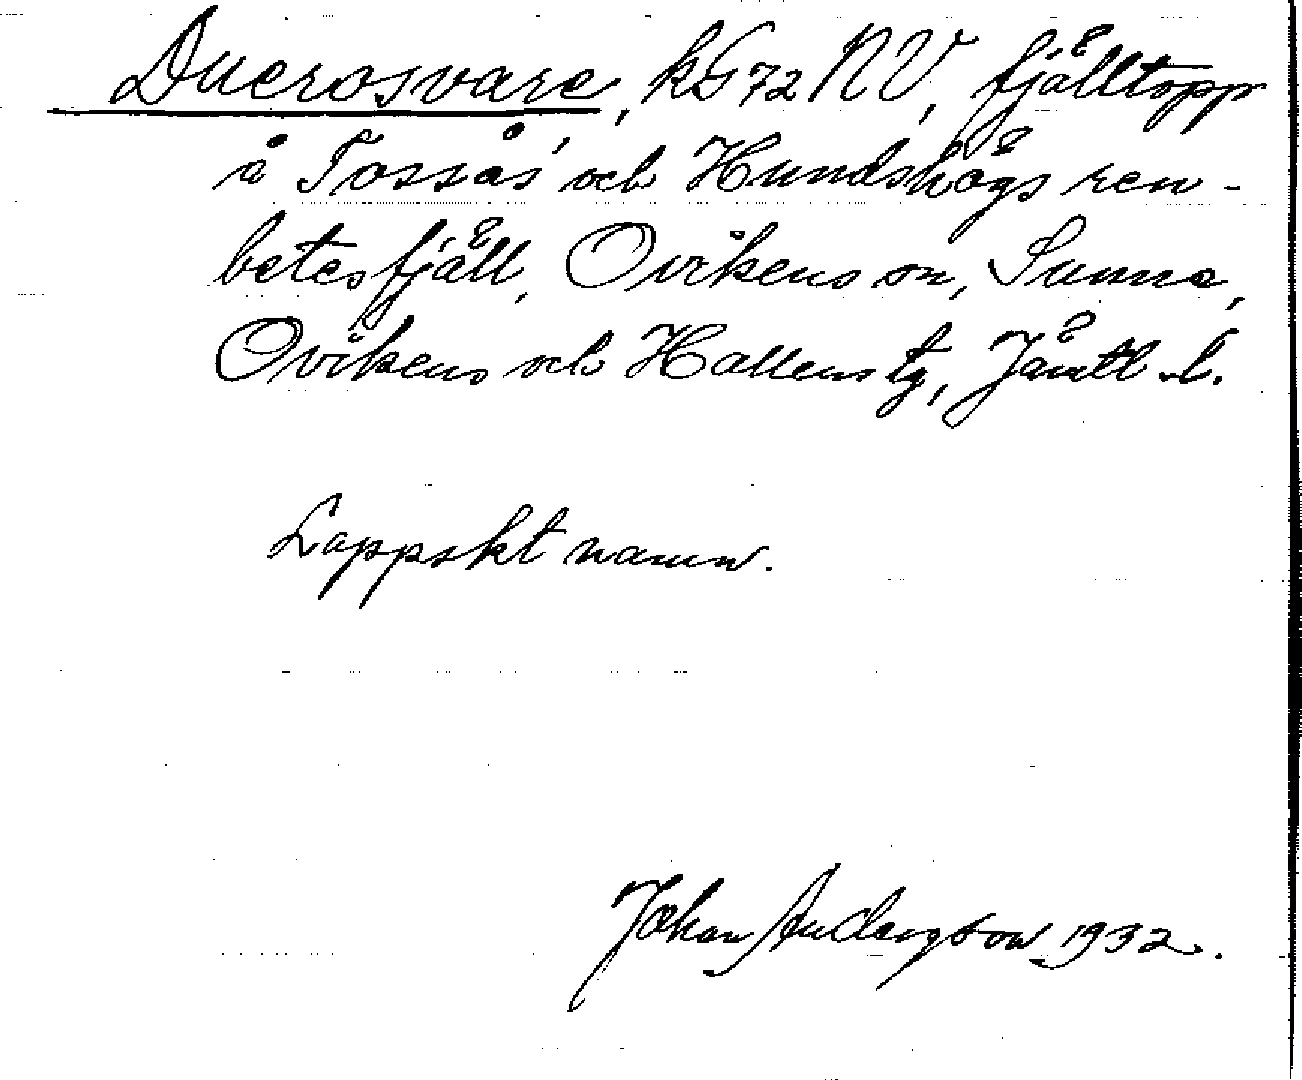 Duerosvare, kG 72 NV, fjälltopp
å Tossås' och Hundshögs ren-
betesfjäll, Ovikens sn, Sunne,
Ovikens och Hallens tg, Jämtl. l.
Lappskt namn.
Johan Anderson 1932.